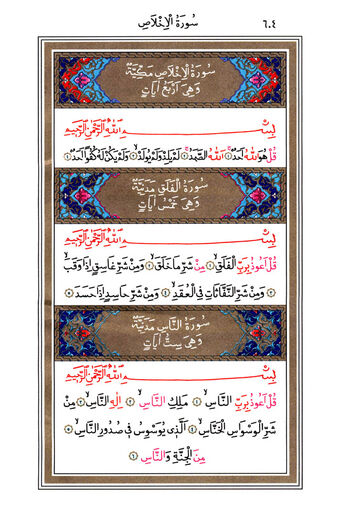 ٦٠٤ سُورَةُ الْاِخْلَاصِ
سُورَةُ الْاِخْلَاصِ مَكِّيَّةٌ
وَهِيَ اَرْبَعُ اٰيَاتٍ
بِسْمِ اللّٰهِ الرَّحْمٰنِ الرَّحِيمِ
قُلْ هُوَ اللّٰهُ اَحَدٌ ۝١ اَللّٰهُ الصَّمَدُ ۝٢ لَمْ يَلِدْ وَلَمْ يُولَدْ ۝٣ وَلَمْ يَكُنْ لَهُ كُفُوًا اَحَدٌ ۝٤
سُورَةُ الْفَلَقِ مَدَنِيَّةٌ
وَهِيَ خَمْسُ اٰيَاتٍ
بِسْمِ اللّٰهِ الرَّحْمٰنِ الرَّحِيمِ
قُلْ اَعُوذُ بِرَبِّ الْفَلَقِۙ ۝١ مِنْ شَرِّ مَا خَلَقَۙ ۝٢ وَمِنْ شَرِّ غَاسِقٍ اِذَا وَقَبَۙ
۝٣ وَمِنْ شَرِّ النَّفَّاثَاتِ فِي الْعُقَدِۙ ۝٤ وَمِنْ شَرِّ حَاسِدٍ اِذَا حَسَدَ ۝٥
سُورَةُ النَّاسِ مَدَنِيَّةٌ
وَهِيَ سِتُّ اٰيَاتٍ
بِسْمِ اللّٰهِ الرَّحْمٰنِ الرَّحِيمِ
قُلْ اَعُوذُ بِرَبِّ النَّاسِۙ ۝١ مَلِكِ النَّاسِۙ ۝٢ اِلٰهِ النَّاسِۙ ۝٣ مِنْ
شَرِّ الْوَسْوَاسِ الْخَنَّاسِۙ ۝٤ اَلَّذِي يُوَسْوِسُ فِي صُدُورِ النَّاسِۙ ۝٥
مِنَ الْجِنَّةِ وَالنَّاسِ ۝٦